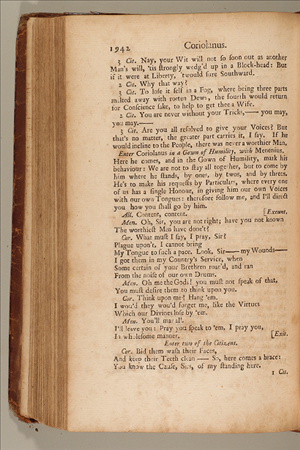 1942 Coriolanus.
3 Cit. Nay, your Wit will not so soon out as another
Man's will, 'tis strongly wedg'd up in a Block-head: But
if it were at Liberty, 'twould sure Southward.
2 Cit. Why that way?
3 Cit. To lose it self in a Fog, where being three parts
melted away with rotten Dews, the fourth would return
for Conscience sake, to help to get thee a Wife.
2 Cit. You are never without your Tricks,—— you may,
you may.——
3 Cit. Are you all resolved to give your Voices? But
that's no matter, the greater part carries it, I say. If he
would incline to the People, there was never a worthier Man.
Enter Coriolanus in a Gown of Humility, with Menenius.
Here he comes, and in the Gown of Humility, mark his
behaviour: We are not to stay all together, but to come by
him where he stands, by one, by two, and by threes.
He's to make his requests by Particulars, where every one
of us has a single Honour, in giving him our own Voices
with our own Tongues: therefore follow me, and I'll direct
you how you shall go by him.
All. Content, content. [Exeunt.
Men. Oh, Sir, you are not right; have you not known
The worthiest Men have done't?
Cor. What must I say, I pray, Sir?
Plague upon't, I cannot bring
My Tongue to such a pace. Look, Sir—— my Wounds——
I got them in my Country's Service, when
Some certain of your Brethren roar'd, and ran
From the noise of our own Drums.
Men. Oh me the Gods! you must not speak of that,
You must desire them to think upon you.
Cor. Think upon me? Hang 'em.
I wou'd they wou'd forget me, like the Virtues
Which our Divines lose by 'em.
Men. You'll mar all.
I'll leave you: Pray you speak to 'em, I pray you,
In wholesome manner. [Exit.
Enter two of the Citizens.
Cor. Bid them wash their Faces,
And keep their Teeth clean —— So, here comes a brace:
You know the Cause, Sirs, of my standing here.
1 Cit.